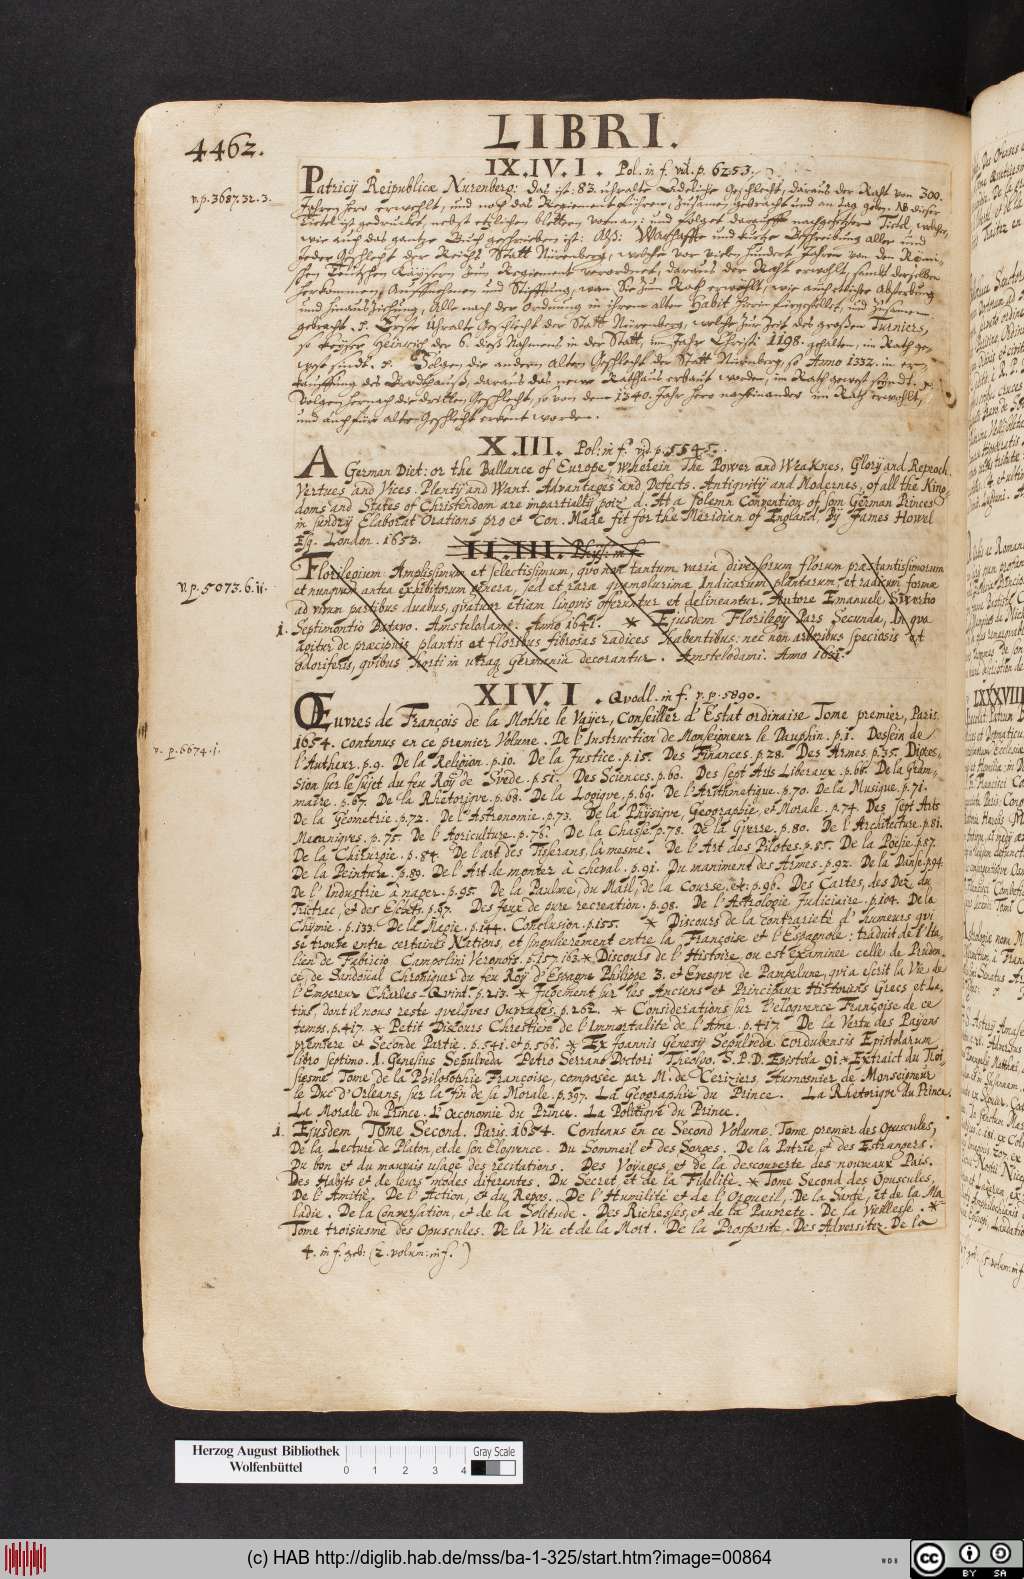 4462.
LIBRI.
IX.IV.I. Pol. in f. vid. p. 6253.
v.p. 3687.32.3.
Patricij Reipublicæ Nurenberg: das ist: 83. uhralte Adeliche Geschlecht, daraus der Raht von 300.
Jahren hero erwehlt, und
Tittel ist gedrucket nebst etzlichen blättern vornan; und folget darauff nachgesetzter Titel, welcher,
wie auch das gantze Buch geschrieben ist: Alß: Warhaffte und kurtze Beschreibung aller und
jeder Geschlecht der Reichs Statt Nürenberg, welche vor vielen hundert Jahren von den Römi-
schen Teutschen Kaysern zum Regiment verordnet, daraus der Raht erwehlt, sambt derselben
herkommen,
und hinaus Ziehung, Alle nach der Ordnung in ihrem alten Habit hierin fürgestelt, und zusamen
gebracht. 5. Erste Uhralte Geschlecht der Statt Nürenberg, welche zur Zeit des großen Turniers,
so Keyser Heinrich der 6. dieß Nahmens in der Statt, im Jahr Christi 1198. gehalten, im Rath ge-
west sindt. Folgen die anderen alten Geschlecht der Statt Nürenberg, so Anno 1332. in er-
kauffung des daraus das newe Rathaus erbaut worden, im Rath gewest seyndt.
Volgen hernach die dritten Geschlecht, so von dem 1340. Jahr hero nacheinander im Rath erwehlt,
und auch für alte Geschlecht erkent worden.
X.III. Pol: in f. vid. p. 5545.
A German Diet: or the Ballance of Europe, wherein the Power and Weaknes, Glory and Reproch,
Vertues and Vices. Plenty and Want. Advantages and Defects. Antiquity and Modernes, of all the King-
doms and States of Christendom are impartially poiz'd. At a solemn Convention of som German Princes
in sundry Elaborat Orations pro et Con. Made fit for the Meridian of England, By James Howel
Esq. London. 1653.
II.III. Phys: in f.
v.p. 5073.6.ii.
Florilegium Amplissimum et selectissimum, quo non tantum varia diversorum florum præstantissimorum
et nunquam antea exhibitorum genera, sed et rara quamplurima Indicarum plantarum, et radicum formæ
ad vivum partibus duabus, quatuor etiam linguis offeruntur et delineantur. Autore Emanuele Swertio
1. Septimontio Batavo. Amstelodami. Anno 1641. * Ejusdem Florilegij Pars Secunda, In quo
agitur de præcipuis plantis et floribus fibrosas radices habentibus. nec non arboribus speciosis et
odoriferis, quibus horti in utraq Germania decorantur. Amstelodami. Anno 1631.
XIV.I. Quodl. in f. v. p. 5890.
Œuvres de François de la Mothe le Vayer, Conseiller d'Estat ordinaire Tome premier, Paris.
v. p. 6674.1.
1654. contenus en ce premier Volume. De l'Instruction de Monseigneur le Dauphin. p.1. Dessein de
l'Autheur. p.9. De la Religion. p.10. De la Justice. p.15. Des Finances. p.28. Des Armes. p.35. Digres-
sion sur le sujet du feu Roy de Svede. p.51. Des Sciences. p.60. Des sept Arts Liberaux. p.66. De la Gram-
maire. p.67. De la Rhetorique. p.68. De la Logique. p.69. De l'Arithmetique. p.70. De la Musique. p.71.
De la Geometrie. p.72. De l'Astronomie. p.73. De la Physique, Geographie, et Morale. p.74. Des sept Arts
Mecaniques. p.75. De l'Agriculture. p.76. De la Chasse. p.78. De la Guerre. p.80. De l'Architecture. p.81.
De la Chirurgie. p.84. De l'art des Tisserans, la mesme. De l'Art des Pilotes. p.85. De la Poesie. p.87.
De la Peinture. p.89. De l'Art de monter à cheval. p.91. Du maniment des Armes. p.92. De la Danse. p.94
De l'Industrie à nager. p.95. De la Paulme, du Mail, de la Course, etc. p.96. Des Cartes, des Dez, du
Trictrac, et des Echets. p.97. Des jeux de pure recreation. p.98. De l'Astrologie Judiciaire. p.104. De la
Chymie. p.133. De la Magie. p.144. Conclusion. p.155. * Discours de la contrarieté d'humeurs qui
se trouve entre certaines Nations, et singulierement entre la Françoise et l'Espagnole: traduit de l'Ita-
lien de Fabricio Campolini Veronois. p.157.163. * Discours de l'Histoire, ou est examinee celle de Pruden-
ce de Sandoual Chroniqueur du feu Roy d'Espagne Philippe 3. et Evesque de Pampelune, qui a escrit la Vie de
l'Empereur Charles-Quint. p.213. * Jugement sur les Anciens et Principaux Historiens Grecs et La-
tins, dont il nous reste quelques Ouvrages. p.262. * Considerations sur l'eloquence Françoise de ce
temps. p.417. * Petit Discours Chrestien de l'Immortalité de l'Ame. p.417. De la Vertu des Payens
premiere et Seconde Partie. p.541. et p.566. * Ex Joannis Genesij Sepulvedæ cordubensis Epistolarum
libro septimo. I. Genesius Sepulveda Petro Serrano Doctori Theologo. S.P.D. Epistola 91. * Extraict du Troi-
siesme Tome de la Philosophie Françoise, composée par M. de Ceriziers, Aumosnier de Monseigneur
le Duc d'Orleans, sur la fin de la Morale. p.397. La Geographie du Prince. La Rhetorique du Prince.
La Morale du Prince. L'œconomie du Prince. La Politique du Prince.
1. Ejusdem Tome Second. Paris. 1654. Contenus en ce Second Volume, Tome premier des Opuscules,
De la Lecture de Platon, et de son Eloquence. Du Sommeil et des Songes. De la Patrie, et des Estrangers.
Du bon et du mauvais usage des recitations. Des Voyages, et de la descouverte des nouveaux Pais.
Des Habits et de leurs modes diferentes. Du Secret, et de la Fidelité. * Tome Second des Opuscules,
De l'Amitié. De l'Action, et du Repos. De l'Humilité et de l'Orgueil, De la Santé, et de la Ma-
ladie. De la Conversation, et de la Solitude. Des Richesses, et de la Pauvreté. De la Vieillesse. *
Tome troisiesme des Opuscules. De la Vie et de la Mort. De la Prosperité. Des Adversitez. De la
4. in f. geb: (2. volum: in f.)
LXXXVIII
Herzog August Bibliothek
Wolfenbüttel
0 1 2 3 4
Gray Scale
(c) HAB http://diglib.hab.de/mss/ba-1-325/start.htm?image=00864
WDB
cc
BY SA